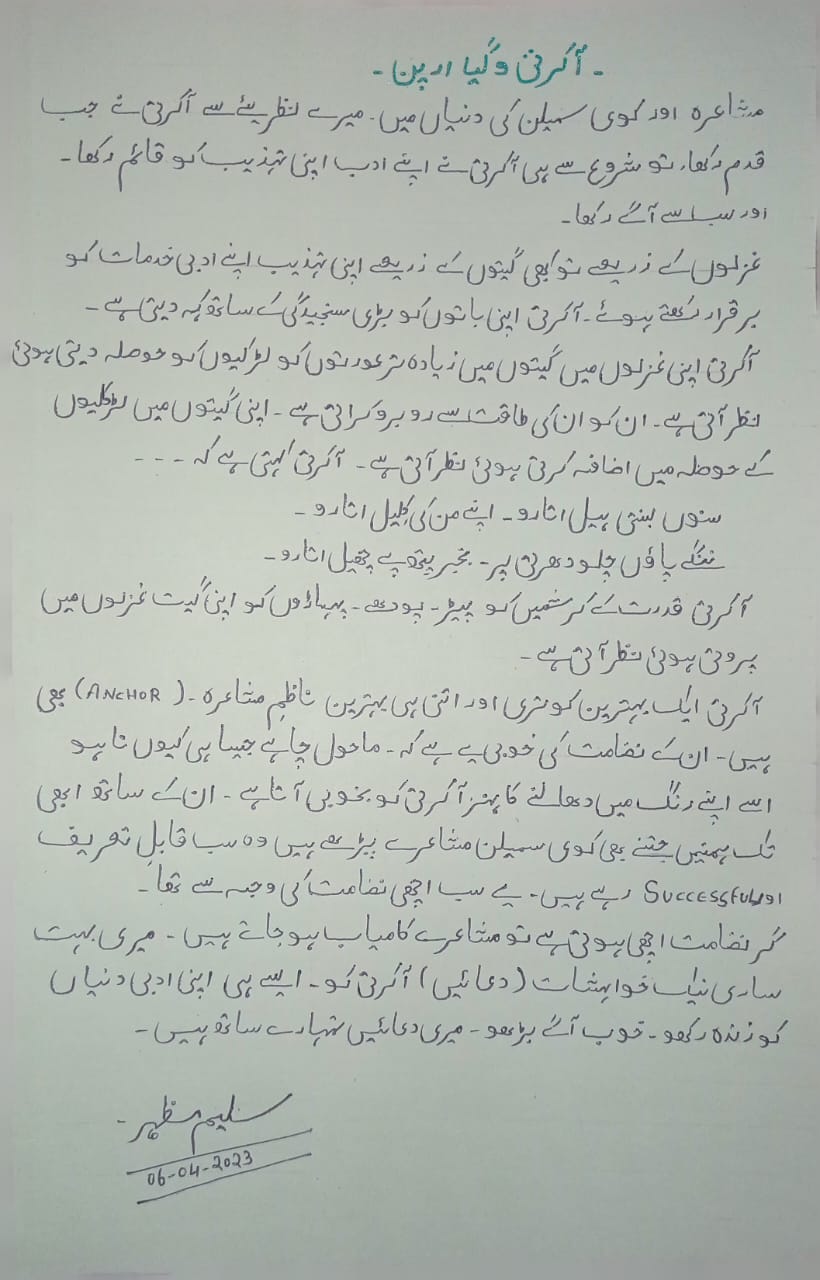 ۔ آکرتی وگیا ارپن ۔
مشاعرہ اور کوی سمیلن کی دنیاں میں۔ میرے نظریئے سے آکرتی نے جب
قدم رکھا، تو شروع سے ہی آکرتی نے اپنے ادب اپنی تہذیب کو قائم رکھا۔
اور سب سے آگے رکھا۔
غزلوں کے ذریعے تو کبھی گیتوں کے ذریعے اپنی تہذیب اپنے ادبی خدمات کو
برقرار رکھتے ہوئے۔ آکرتی اپنی باتوں کو بڑی سنجیدگی کے ساتھ کہہ دیتی ہے۔
آکرتی اپنی غزلوں میں گیتوں میں زیادہ تر عورتوں کو لڑکیوں کو حوصلہ دیتی ہوئی
نظر آتی ہے۔ ان کو ان کی طاقت سے روبرو کراتی ہے۔ اپنی گیتوں میں لڑکیوں
کے حوصلہ میں اضافہ کرتی ہوئی نظر آتی ہے۔ آکرتی کہتی ہے کہ ۔ ۔ ۔
سنوں بسنتی ہیل اتارو۔ اپنے من کی کلیل اتارو۔
ننگے پاؤں چلو دھرتی پر۔ بنجر پتھ پے چھیل اتارو۔
آکرتی قدرت کے کرشمیں کو پیڑ۔ پودھے۔ پہاڑوں کو اپنی گیت غزلوں میں
پروتی ہوئی نظر آتی ہے۔
آکرتی ایک بہترین کویتری اور اتنی ہی بہترین ناظمِ مشاعرہ۔ (ANCHOR) بھی
ہیں۔ ان کے نظامت کی خوبی یے ہے کہ۔ ماحول چاہے جیسا ہی کیوں نا ہو
اسے اپنے رنگ میں دھالنے کا ہنر آکرتی کو بخوبی آتا ہے۔ ان کے ساتھ ابھی
تک ہمنیں جتنے بھی کوی سمیلن مشاعرے پڑھے ہیں وہ سب قابلِ تعریف
اور Successful رہے ہیں۔ یے سب اچھی نظامت کی وجہ سے تھا۔
گر نظامت اچھی ہوتی ہے تو مشاعرے کامیاب ہو جاتے ہیں۔ میری بہت
ساری نیک خواہشات (دعائیں) آکرتی کو۔ ایسے ہی اپنی ادبی دنیاں
کو زندہ رکھو۔ خوب آگے بڑھو۔ میری دعائیں تمہارے ساتھ ہیں۔
سلیم مظہر۔
06-04-2023